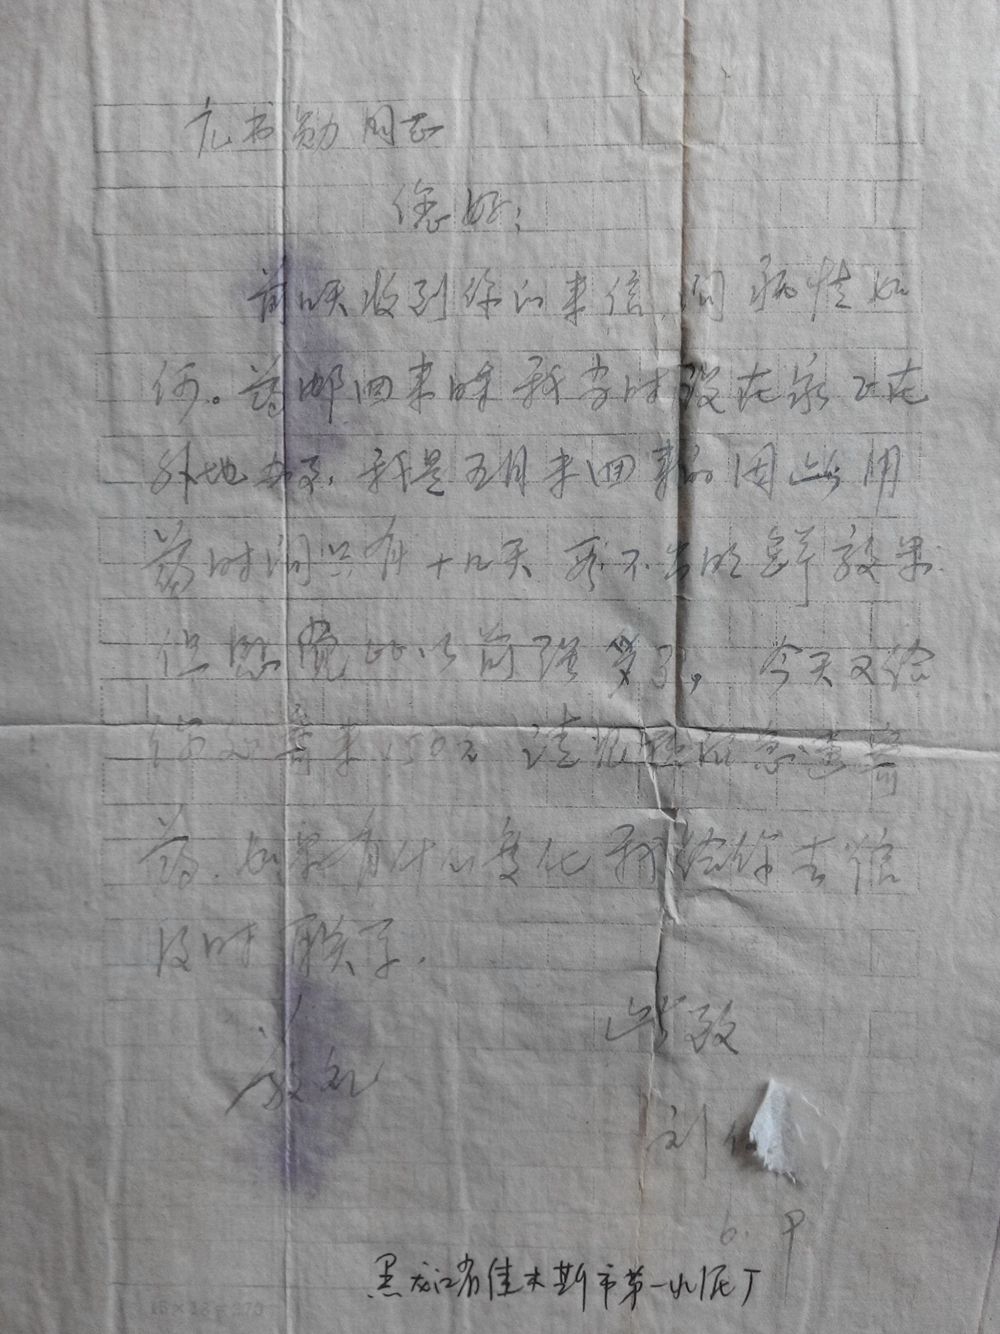 尤书勋同志
您好:
前几天收到你的来信,问病情如
何。药邮回来时我当时没在家正在
外地办事,我是五月末回来的因此用
药时间只有十几天 看不出明显效果.
但感觉比以前强多了, 今天又给
你处寄来150元 请收到后急速寄
药.如果有什么变化我给你去信
及时联系.
此致
敬礼
刘
6.9
黑龙江省佳木斯市第一水泥厂